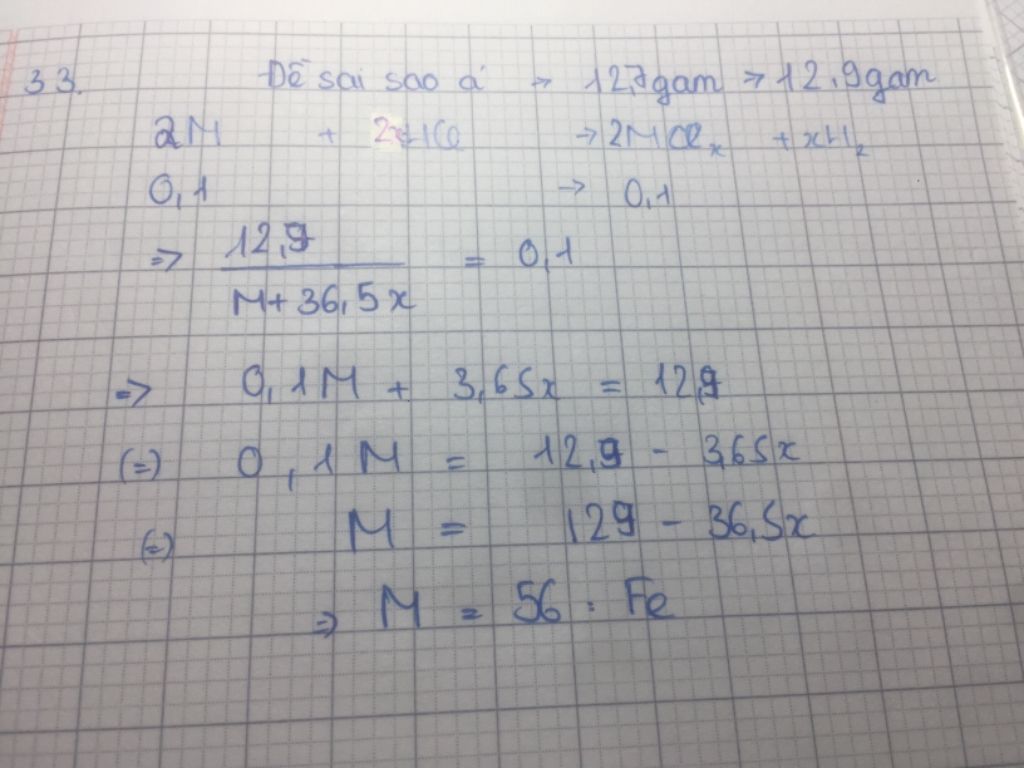 33. Đề sai sao á → 12,7gam → 12,9gam
2M + 2xHCl → 2MClₓ + xH₂
0,1 → 0,1
=> 12,9 / M+36,5x = 0,1
=> 0,1M + 3,65x = 12,9
(=) 0,1M = 12,9 - 3,65x
(=) M = 129 - 36,5x
=> M = 56 : Fe